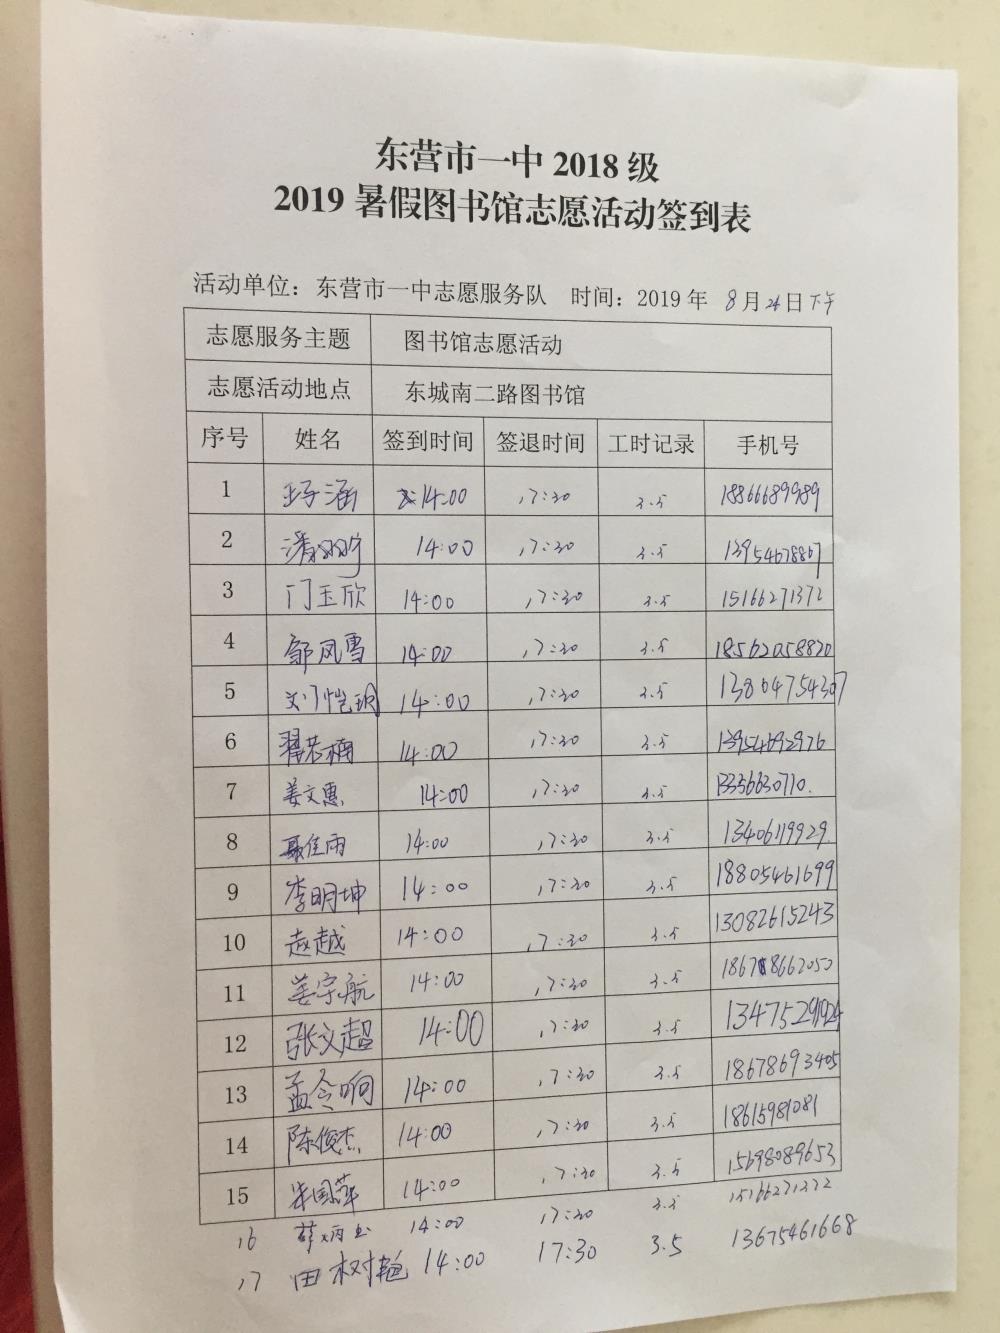 东营市一中 2018 级
2019 暑假图书馆志愿活动签到表
活动单位：东营市一中志愿服务队 时间：2019 年 8 月 24 日 下午
志愿服务主题 图书馆志愿活动
志愿活动地点 东城南二路图书馆
序号 姓名 签到时间 签退时间 工时记录 手机号
1 14:00 17:30 3.5 18866689989
2 14:00 17:30 3.5 13954678867
3 门玉欣 14:00 17:30 3.5 15166271372
4 邹凤雪 14:00 17:30 3.5 18562058820
5 刘恺玥 14:00 17:30 3.5 13864754307
6 翟若楠 14:00 17:30 3.5 13954692976
7 姜文惠 14:00 17:30 3.5 13356630710.
8 聂佳雨 14:00 17:30 3.5 13406119929.
9 李明坤 14:00 17:30 3.5 18805461699
10 赵越 14:00 17:30 3.5 13082615243
11 姜宇航 14:00 17:30 3.5 18678662050
12 张文超 14:00 17:30 3.5 13475291924
13 孟令响 14:00 17:30 3.5 18678693405
14 陈俊杰 14:00 17:30 3.5 18615981081
15 朱国萍 14:00 17:30 3.5 15698089653
16 14:00 17:30 3.5 15166271372
17 田树艳 14:00 17:30 3.5 13675461668